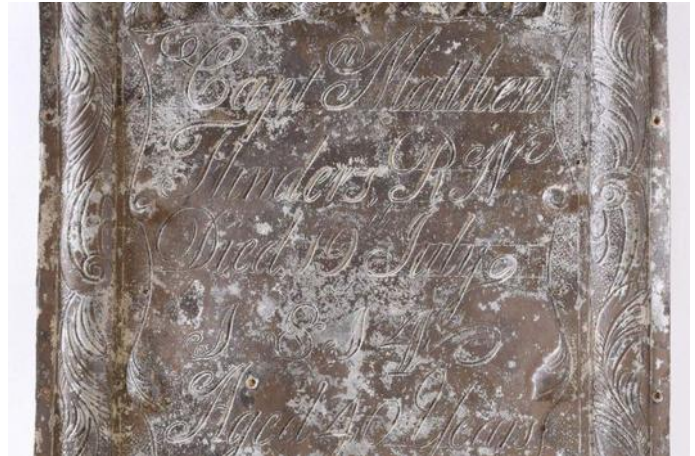 Captn Matthew
Flinders, R N
Died 19 July
1814
Aged 40 Years